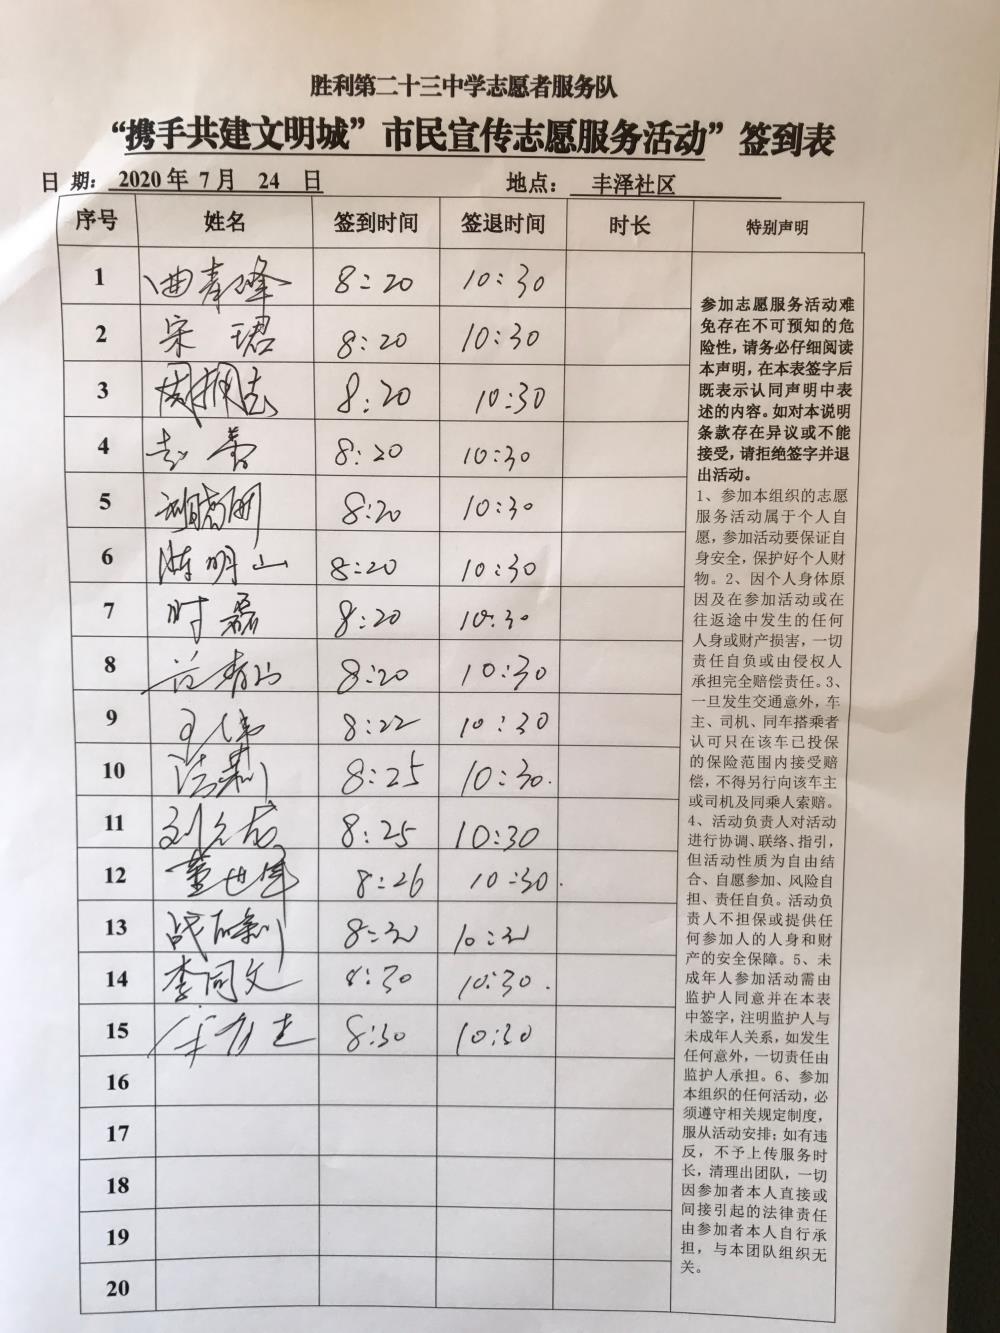 胜利第二十三中学志愿者服务队
“携手共建文明城”市民宣传志愿服务活动”签到表
日 期： 2020年 7月 24 日 地点： 丰泽社区
序号 姓名 签到时间 签退时间 时长 特别声明
1 曲青峰 8:20 10:30
2 宋珺 8:20 10:30
3 8:20 10:30
4 8:20 10:30
5 8:20 10:30
6 陈明山 8:20 10:30
7 时磊 8:20 10:30
8 8:20 10:30
9 王伟 8:22 10:30
10 8:25 10:30.
11 8:25 10:30
12 董世军 8:26 10:30.
13 8:30 10:30
14 李同文 8:30 10:30.
15 8:30 10:30
16
17
18
19
20
参加志愿服务活动难
免存在不可预知的危
险性，请务必仔细阅读
本声明，在本表签字后
既表示认同声明中表
述的内容。如对本说明
条款存在异议或不能
接受，请拒绝签字并退
出活动。
1、参加本组织的志愿
服务活动属于个人自
愿，参加活动要保证自
身安全，保护好个人财
物。2、因个人身体原
因及在参加活动或在
往返途中发生的任何
人身或财产损害，一切
责任自负或由侵权人
承担完全赔偿责任。3、
一旦发生交通意外，车
主、司机、同车搭乘者
认可只在该车已投保
的保险范围内接受赔
偿，不得另行向该车主
或司机及同乘人索赔。
4、活动负责人对活动
进行协调、联络、指引，
但活动性质为自由结
合、自愿参加、风险自
担、责任自负。活动负
责人不担保或提供任
何参加人的人身和财
产的安全保障。5、未
成年人参加活动需由
监护人同意并在本表
中签字，注明监护人与
未成年人关系，如发生
任何意外，一切责任由
监护人承担。6、参加
本组织的任何活动，必
须遵守相关规定制度，
服从活动安排；如有违
反，不予上传服务时
长，清理出团队，一切
因参加者本人直接或
间接引起的法律责任
由参加者本人自行承
担，与本团队组织无
关。